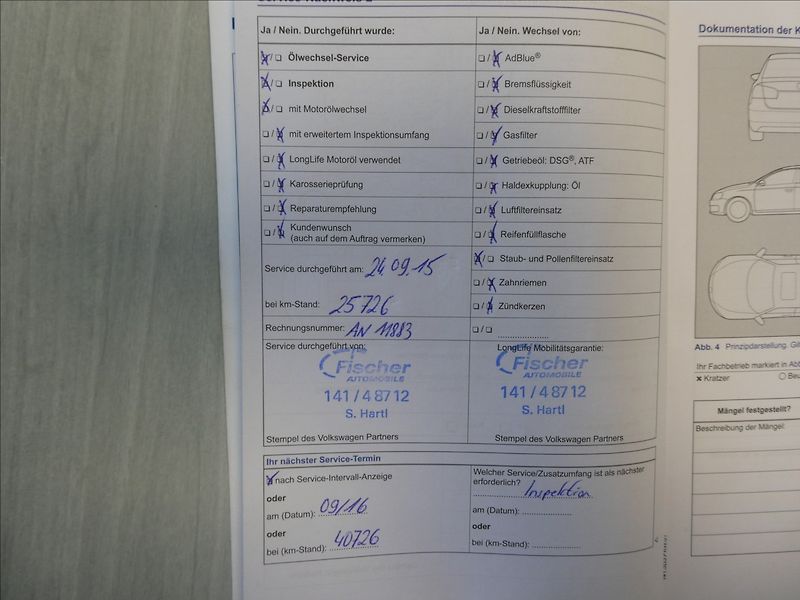 Ja / Nein. Durchgeführt wurde:
Ja / Nein. Wechsel von:
Ölwechsel-Service
Inspektion
mit Motorölwechsel
mit erweitertem Inspektionsumfang
LongLife Motoröl verwendet
Karosserieprüfung
Reparaturempfehlung
Kundenwunsch
(auch auf dem Auftrag vermerken)
AdBlue®
Bremsflüssigkeit
Dieselkraftstofffilter
Gasfilter
Getriebeöl: DSG®, ATF
Haldexkupplung: Öl
Luftfiltereinsatz
Reifenfüllflasche
Staub- und Pollenfiltereinsatz
Zahnriemen
Zündkerzen
Service durchgeführt am: 24.09.15
bei km-Stand: 25726
Rechnungsnummer: AN 11883
Service durchgeführt von:
Fischer
AUTOMOBILE
141 / 4 87 12
S. Hartl
Stempel des Volkswagen Partners
LongLife Mobilitätsgarantie:
Fischer
AUTOMOBILE
141 / 4 87 12
S. Hartl
Stempel des Volkswagen Partners
Ihr nächster Service-Termin
nach Service-Intervall-Anzeige
oder
am (Datum): 09/16
oder
bei (km-Stand): 40726
Welcher Service/Zusatzumfang ist als nächster
erforderlich?
Inspektion
am (Datum):
oder
bei (km-Stand):
Dokumentation der K
Abb. 4 Prinzipdarstellung.
Ihr Fachbetrieb markiert in Abb
x Kratzer
Mängel festgestellt?
Beschreibung der Mängel: